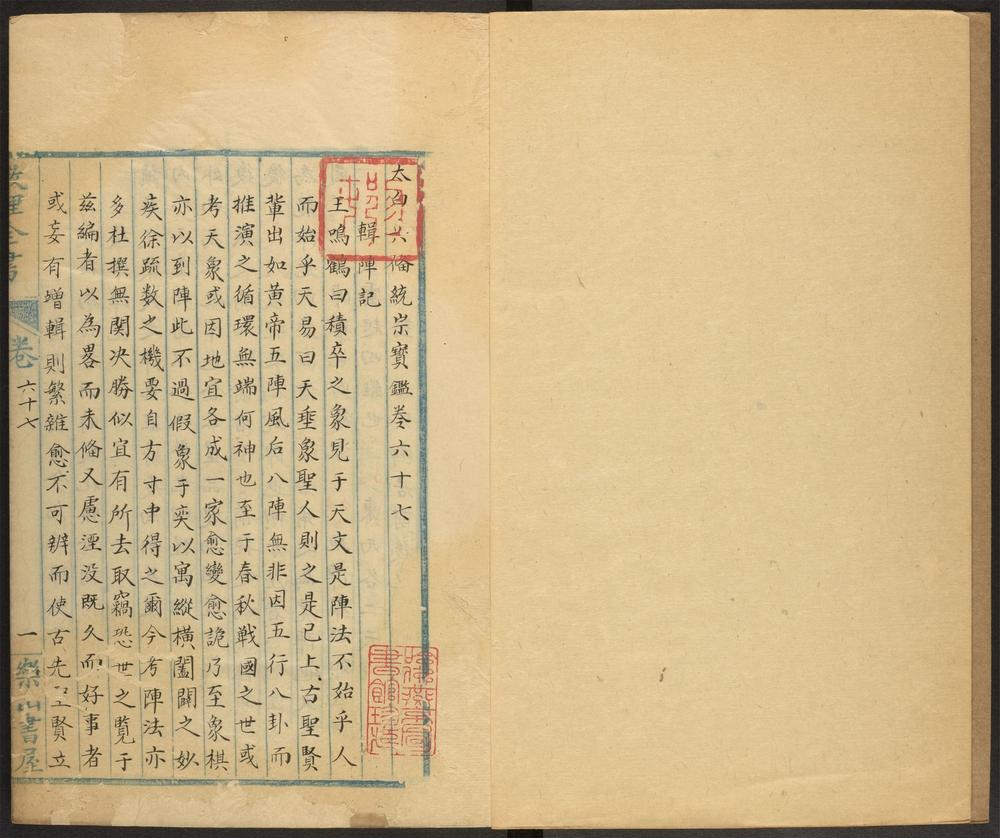 太白六俻統宗寳鑑卷六十七
輯陣記
王鳴鶴曰積卒之象見于天文是陣法不始乎人
而始乎天易曰天垂象聖人則之是已上古聖賢
輩出如黃帝五陣風后八陣無非因五行八卦而
推演之循環無端何神也至于春秋戰國之世或
考天象或因地宜各成一家愈變愈詭乃至象棋
亦以到陣此不過假象于奕以寓縱橫闔闢之妙
疾徐疏数之機要自方寸中得之爾今考陣法亦
多杜撰無関决勝似宜有所去取竊恐世之覽于
茲編者以為畧而未俻又慮湮没既久而好事者
或妄有增輯則繁雜愈不可辨而使古先聖賢立
理全書
卷
六十七
一
樂山書屋